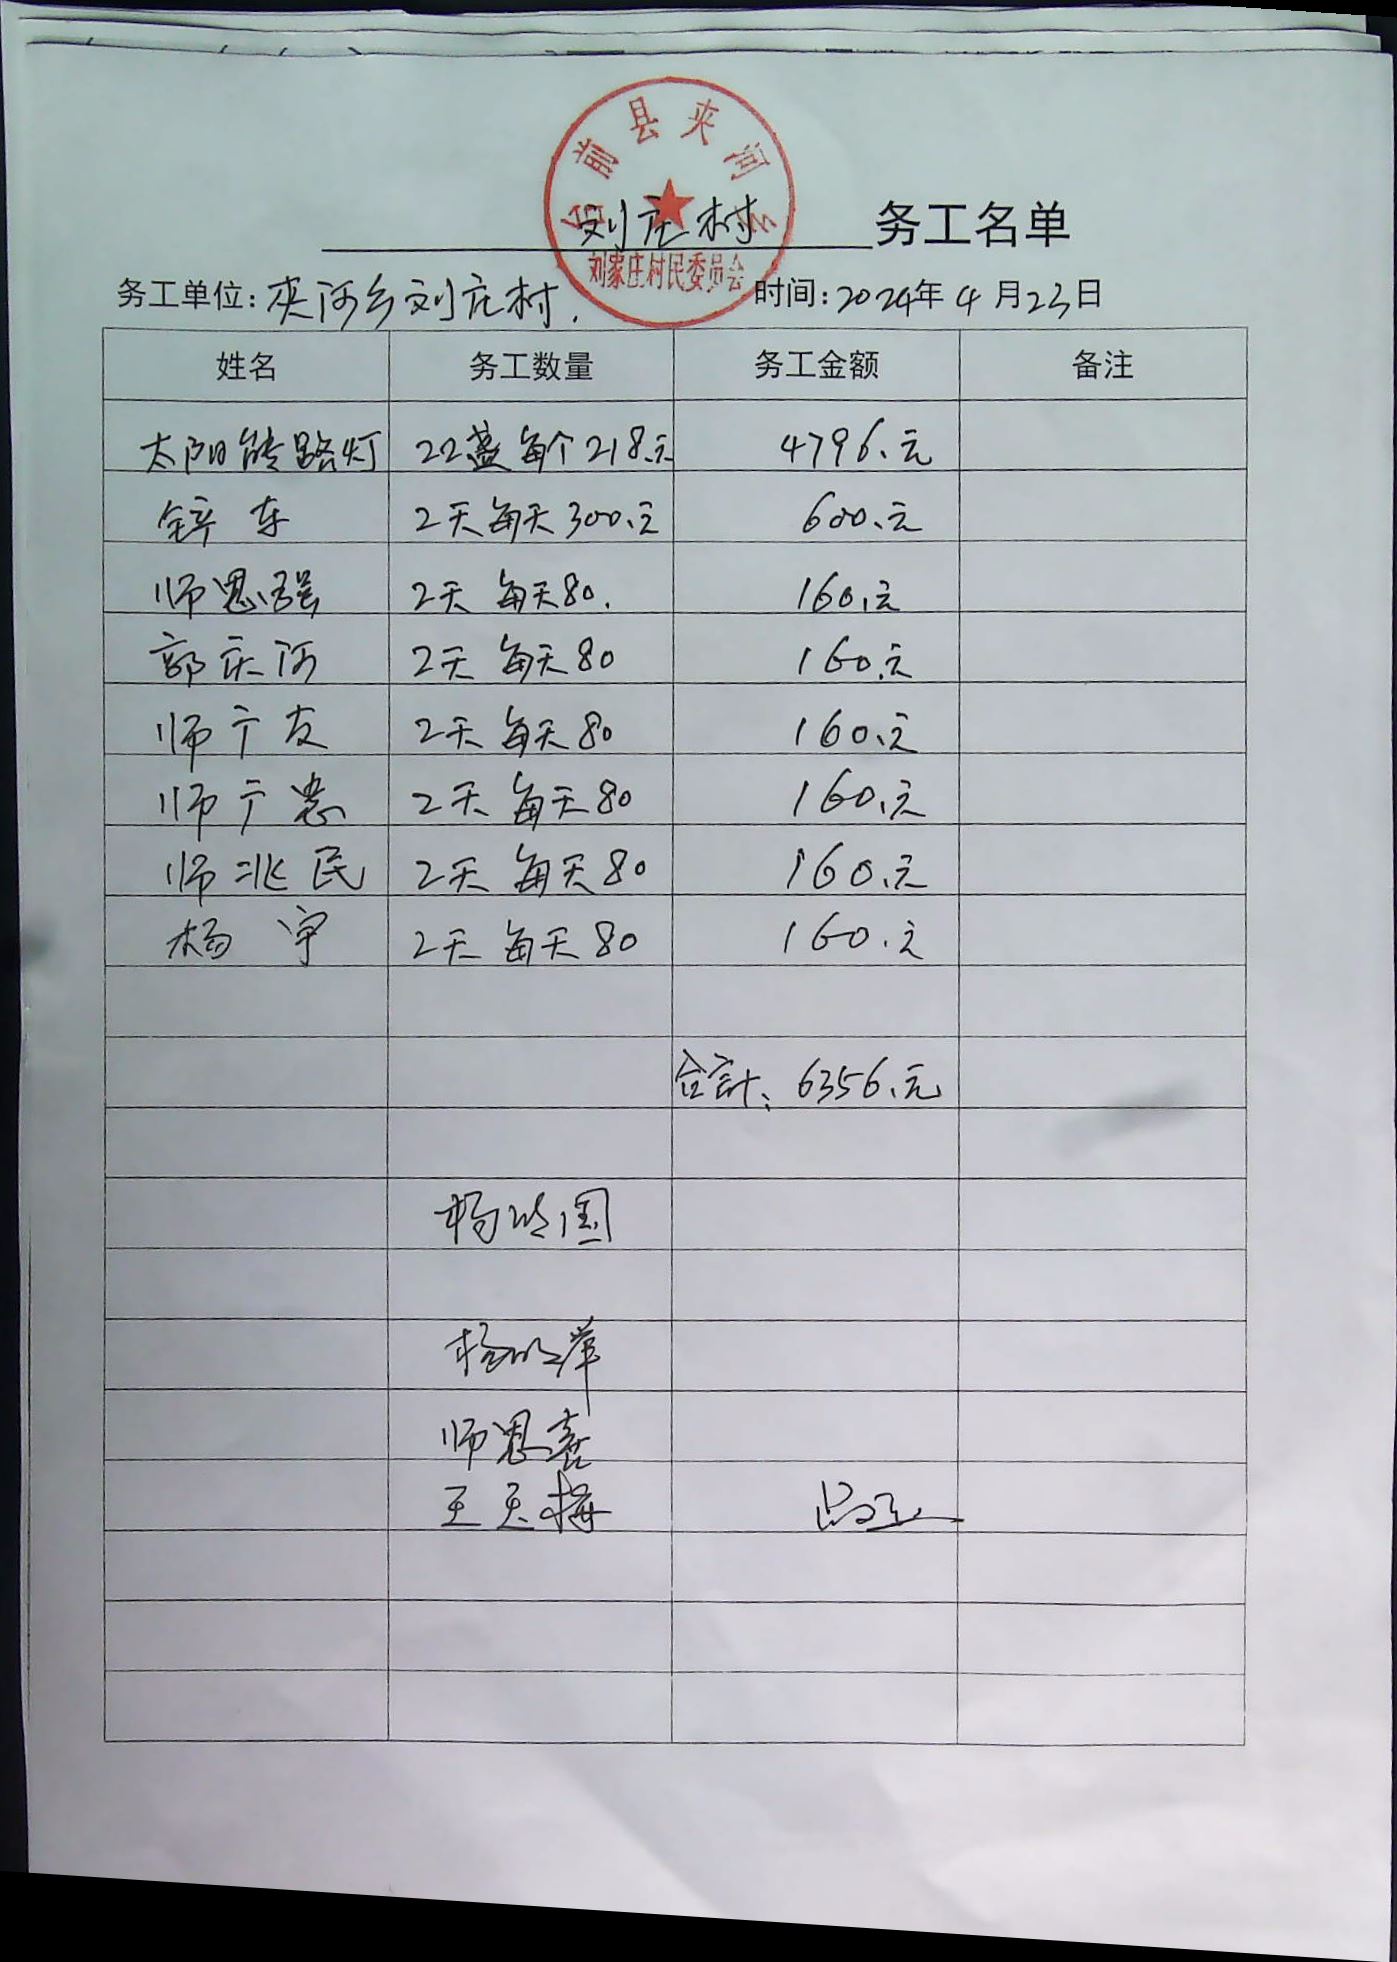 台前县夹河乡
刘庄村 务工名单
刘家庄村民委员会
务工单位:夹河乡刘庄村. 时间:2024年4月23日
姓名 务工数量 务工金额 备注
太阳能路灯 22盏每个218.元 4796.元
铲车 2天每天300.元 600.元
师恩强 2天 每天80. 160.元
郭庆河 2天 每天80 160.元
师广友 2天 每天80 160.元
师广忠 2天 每天80 160.元
师兆民 2天 每天80 160.元
杨宇 2天 每天80 160.元
合计: 6356.元
师恩喜